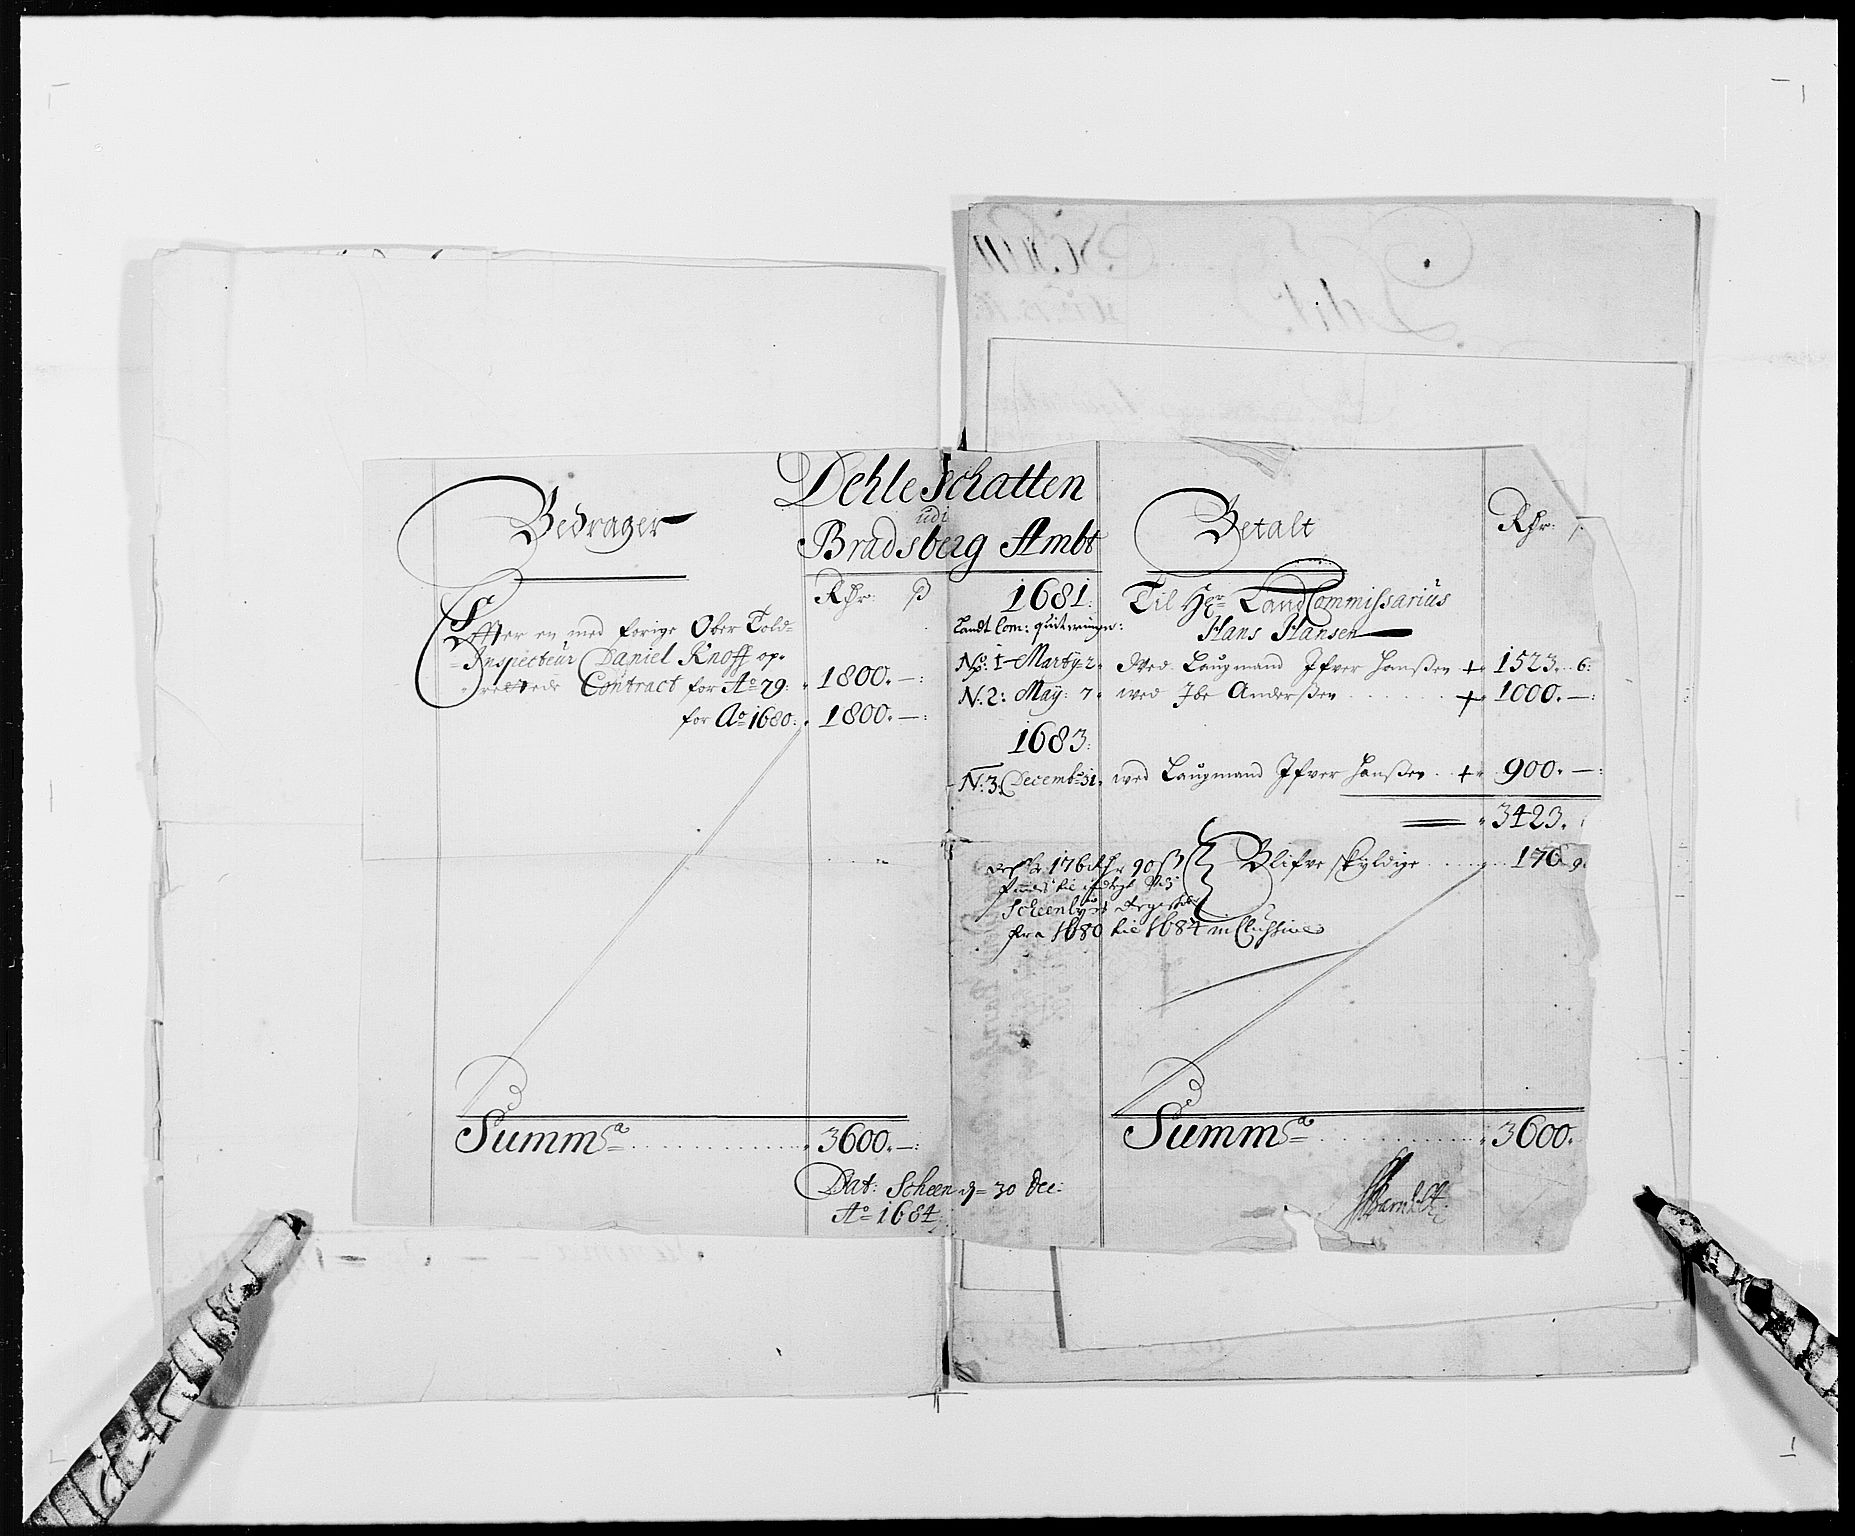 Dehle Schatten
udi
Bradsberg Ambt
Bedrager
Rdr: ß
Effter en med forige Ober Told-
Inspecteur Daniel Knoff op-
rettede Contract for Ao 79: 1800. —:
for Ao 1680: 1800. —:
Summa 3600. —:
Dat: Scheen d= 30 Dec:
Ao 1684
Betalt
Rdr:
1681. Til Hr Land Commissarius
Landt Com: quiteringer: Hans Hansen
No: 1 Marty 2 Med Laugmand Ifver Hanßen + 1523. 6:
N: 2: May: 7 med Ibe Anderßen + 1000. —:
1683.
N: 3: Decemb: 31 med Laugmand Ifver Hanßen + 900. —:
3423.
Blifve skyldige 176 9
176 Rdr 90 ß
fra 1680 til 1684 inclusive
Summa 3600.